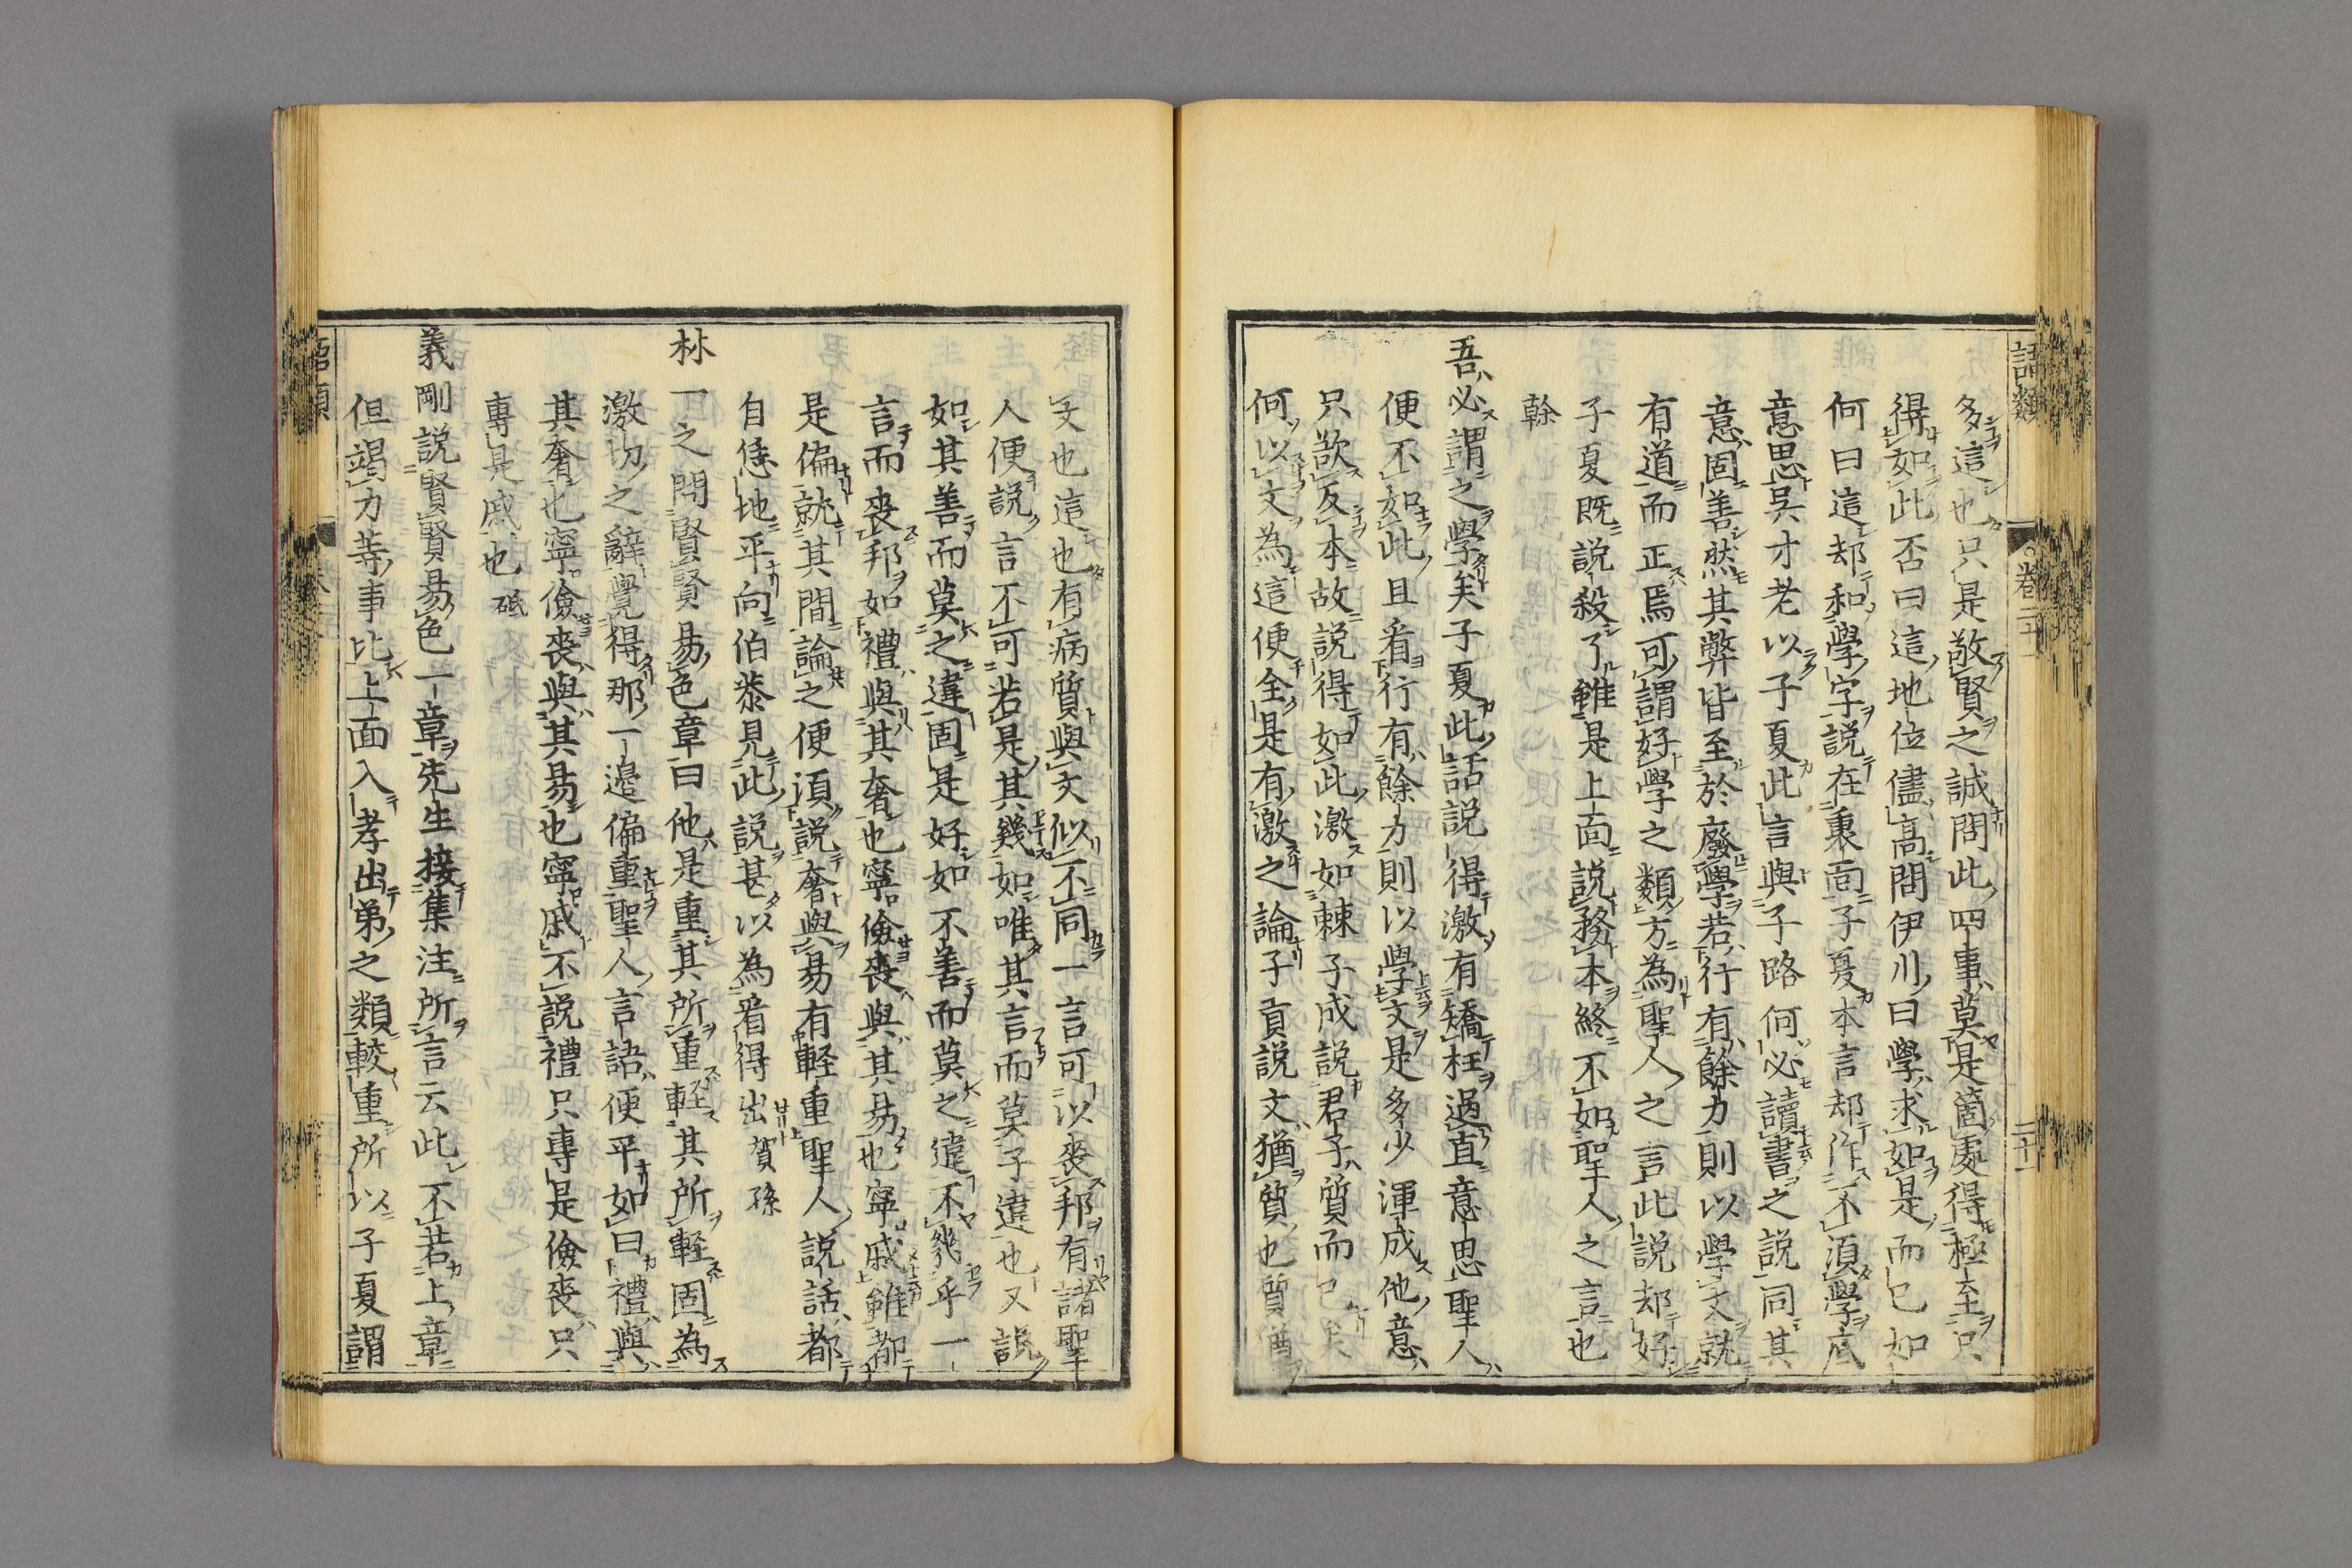 語類
卷二十一
二十一
多這也只是敬賢之誠問此四事莫是箇處得極至只
得如此否曰這地位儘高問伊川曰學求如是而已如
何曰這却和學字說在裏面子夏本言却作不湏學底
意思吳才老以子夏此言與子路何必讀書之說同其
意固善然其弊皆至於廢學若行有餘力則以學文就
有道而正焉可謂好學之類方為聖人之言此說却好
子夏既說殺了雖是上面說務本終不如聖人之言也
榦
吾必謂之學矣子夏此話說得激有矯枉過直意思聖人
便不如此且看行有餘力則以學文是多少渾成他意
只欲反本故說得如此激如棘子成說君子質而已矣
何以文為這便全是有激之論子貢說文猶質也質猶
文也這也有病質與文似不同一言可以喪邦有諸聖
人便說言不可若是其幾如唯其言而莫予違也又說
如其善而莫之違固是好如不善而莫之違不幾乎一
言而喪邦如禮與其奢也寧儉喪與其易也寧戚雖都
是偏就其間論之便湏說奢與易有輕重聖人說話都
自恁地平向伯恭見此說甚以為看得出 賀孫
林一之問賢賢易色章曰他是重其所重輕其所輕固為
激切之辭覺得那一邊偏重聖人言語便平如曰禮與
其奢也寧儉喪與其易也寧戚不說禮只專是儉喪只
專是戚也 砥
義剛說賢賢易色一章先生接集注所言云此不若上章
但竭力等事比上面入孝出弟之類較重所以子夏謂
語類